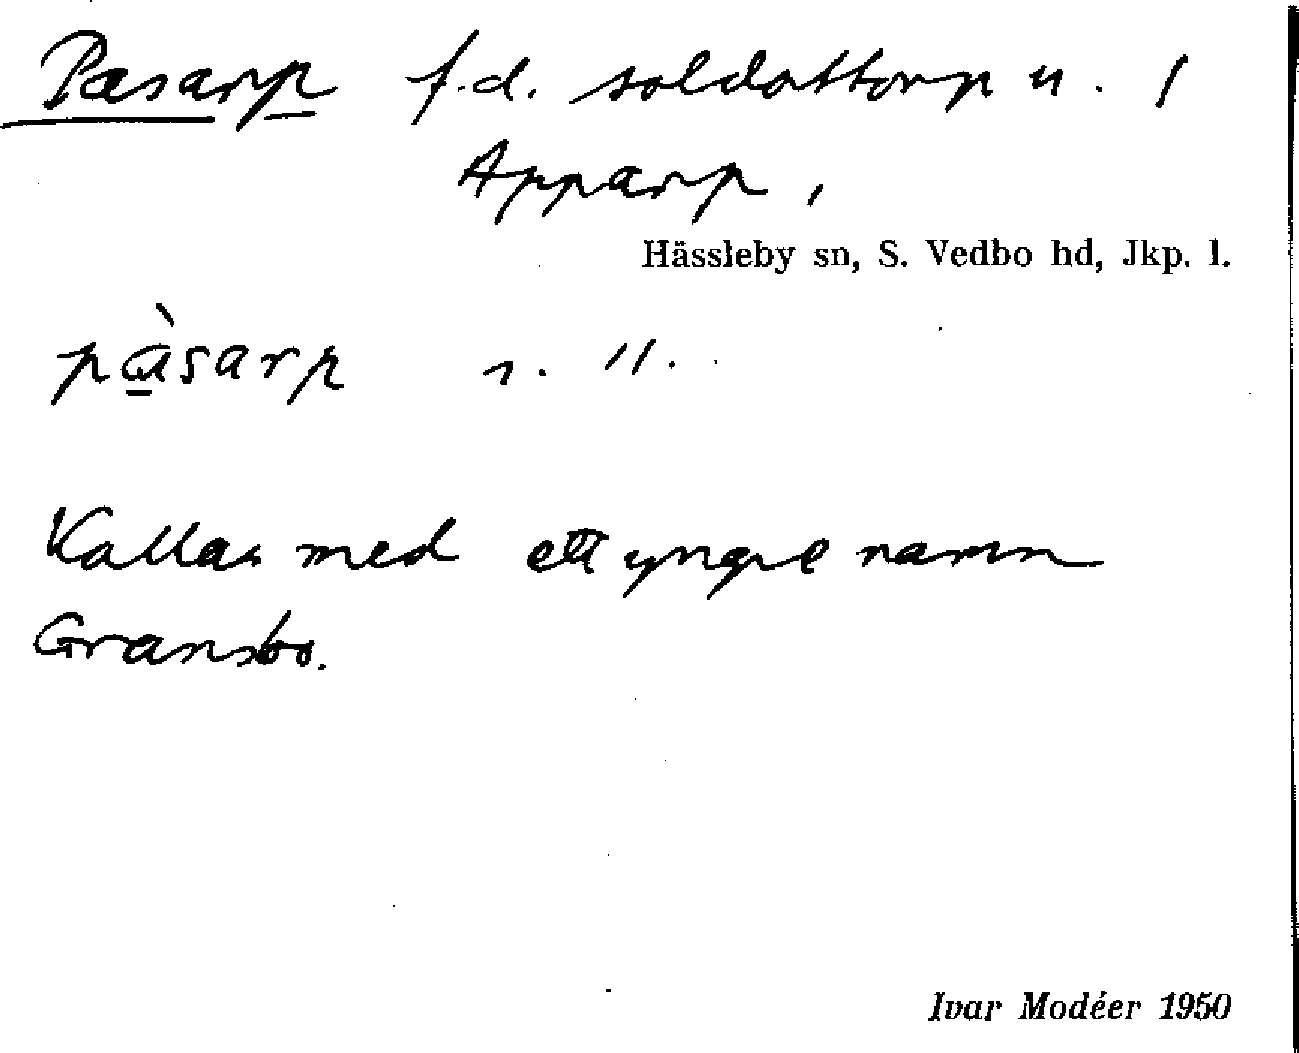 Pasarp f.d. soldattorp u. /
Apparp,
Hässleby sn, S. Vedbo hd, Jkp. l.
pàsarp n. 11.
Kallas med ett yngre namn
Gransbo.
Ivar Modéer 1950